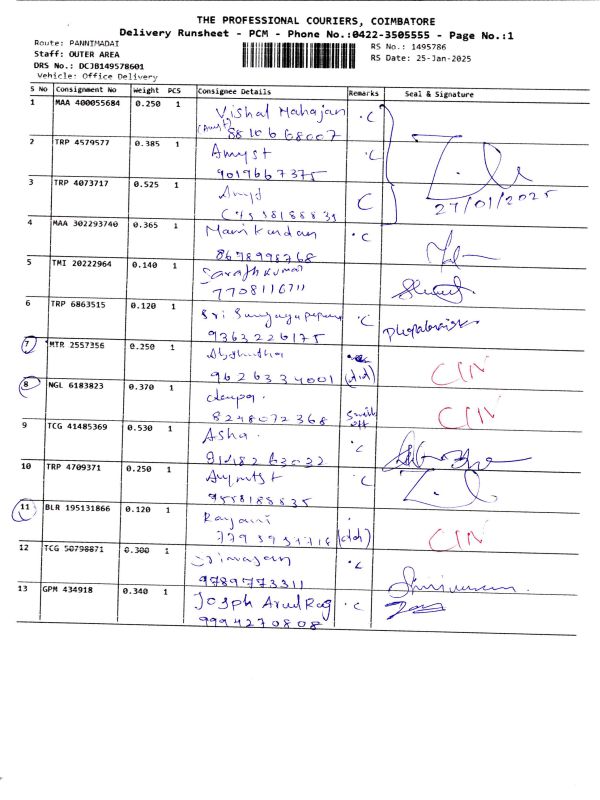 THE PROFESSIONAL COURIERS, COIMBATORE
Delivery Runsheet - PCM - Phone No.:0422-3505555 - Page No.:1
Route: PANNIMADAI
RS No.: 1495786
Staff: OUTER AREA
RS Date: 25-Jan-2025
DRS No.: DCJB149578601
Vehicle: Office Delivery
S No Consignment No Weight PCS Consignee Details Remarks Seal & Signature
1 MAA 400055684 0.250 1 Vishal Mahajan .C
2 TRP 4579577 0.385 1 Amyst .C
9019667375
3 TRP 4073717 0.525 1 C
27/01/2025
4 MAA 302293740 0.365 1 Manikandan .C
8678998768
5 TMI 20222964 0.140 1 Sarathkumar
7708116711
6 TRP 6863515 0.120 1 Sri .C
9363226175
7 MTR 2557356 0.250 1
9626334001 (d.d) CIN
8 NGL 6183823 0.370 1
8248072368 Switch off CIN
9 TCG 41485369 0.530 1 Asha . .C
10 TRP 4709371 0.250 1 .C
9558188835
11 BLR 195131866 0.120 1
(d.d) CIN
12 TCG 50798871 0.300 1 .C
9789773311
13 GPM 434918 0.340 1 Joseph Arul Raj .C
9994270808